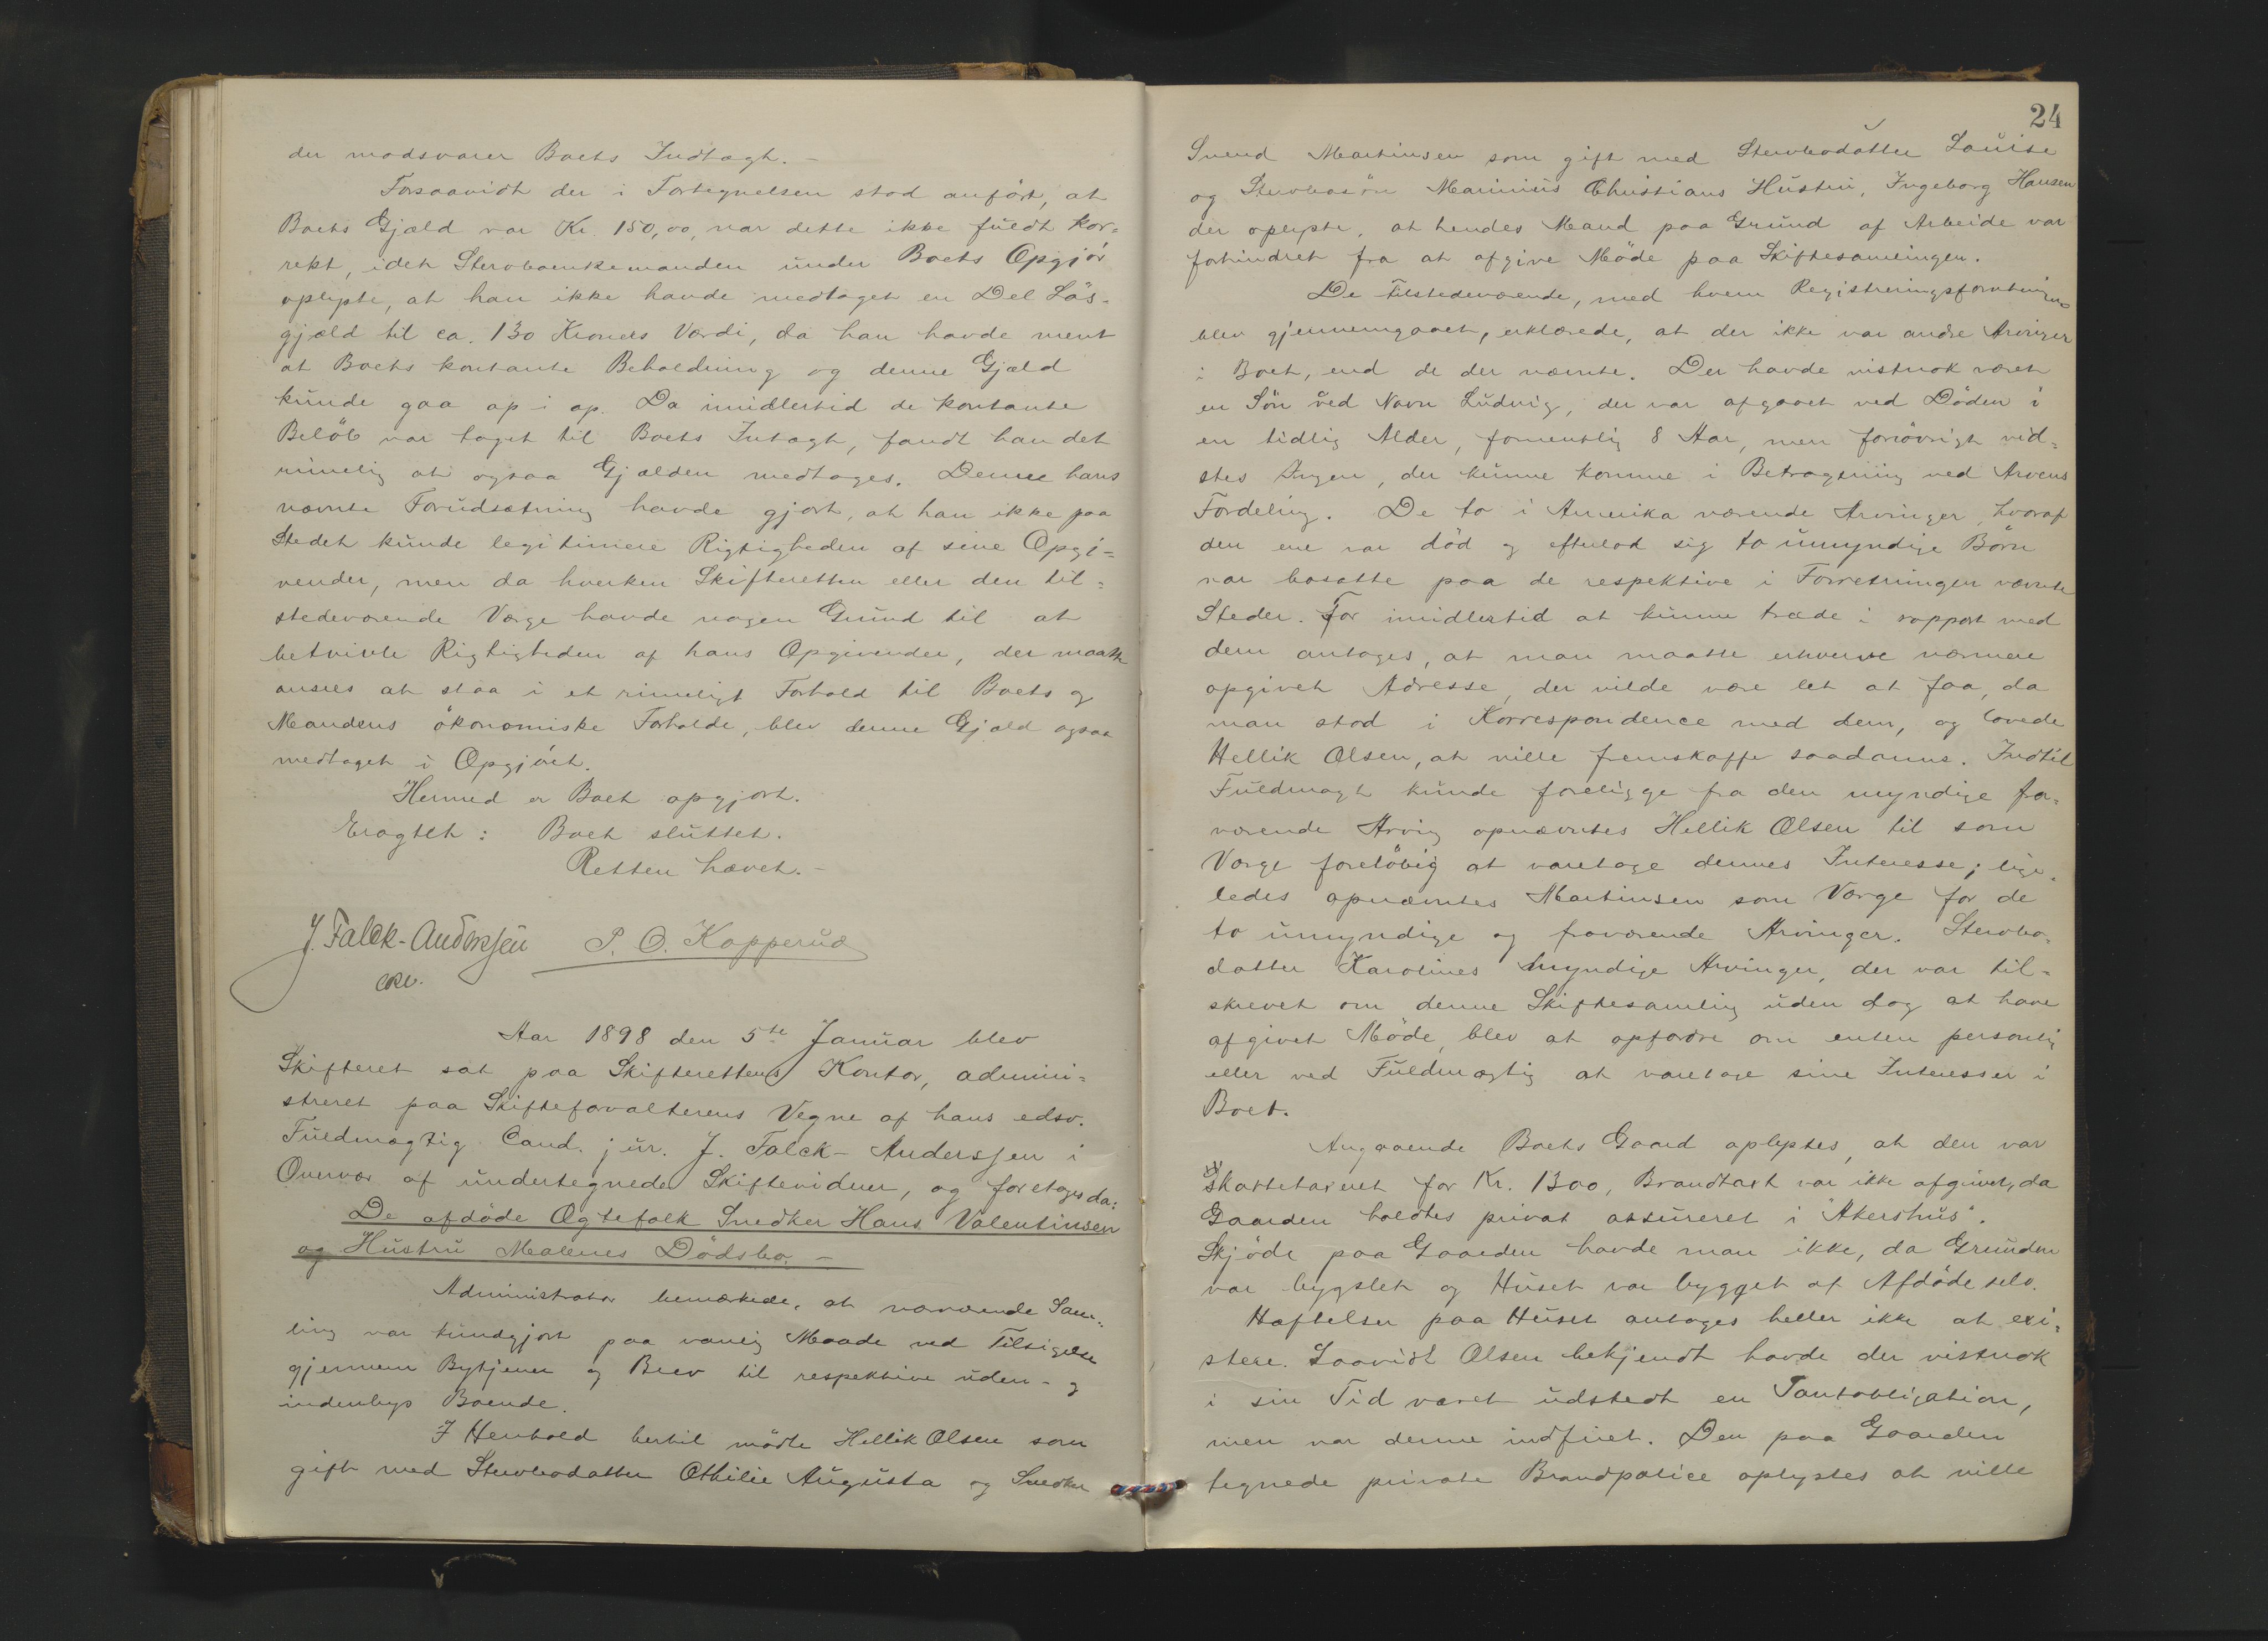 der modsvarer Boets Indtægt. –
Forsaavidt der i Fortegnelsen stod anført, at
Boets Gjæld var Kr. 150,00, var dette ikke fuldt kor=
rekt, idet Stervboenkemanden under Boets Opgjör
oplyste, at han ikke havde medtaget en Del Lös-
gjæld til ca. 130 Kroners Værdi, da han havde ment
at Boets kontante Beholdning og denne Gjæld
kunde gaa op i op. Da imidlertid de kontante
Belöb var taget til Boets Intægt, fandt han det
rimelig at ogsaa Gjælden medtages. Denne hans
nævnte Forudsætning havde gjort, at han ikke paa
Stedet kunde legitimere Rigtigheden af sine Opgi=
vender, men da hverken Skifteretten eller den til=
stedeværende Værge havde nogen Grund til at
betvivle Rigtigheden af hans Opgivender, der maatte
ansees at staa i et rimeligt Forhold til Boets og
Mandens ökonomiske Forholde, blev denne Gjæld ogsaa
medtaget i Opgjöret.
Hermed er Boet opgjort.
Eragtet: Boet sluttet.
Retten hævet. –
J. Falck-Anderssen P. O. Kopperud
Aar 1898 den 5te Januar blev
Skifteret sat paa Skifterettens Kontor, admini=
streret paa Skifteforvalterens Vegne af hans edsv.
Fuldmægtig Cand. jur. J. Falck-Anderssen i
Overvær af undertegnede Skiftevidner, og foretoges da:
De afdöde Ægtefolk Snedker Hans Valentinsen
og Hustru Malenes Dödsbo. –
Administrator bemærkede, at nærværende Sam=
ling var kundgjort paa vanlig Maade ved Tilsigelse
gjennem Bytjener og Brev til respektive uden- og
indenbys Boende.
I Henhold hertil mödte Hellik Olsen som
gift med Stervbodatter Othilie Augusta og Snedker
24
Svend Martinsen som gift med Stervbodatter Louise
og Stervbosön Marinius Christians Hustru, Ingeborg Hansen
der oplyste, at hendes Mand paa Grund af Arbeide var
forhindret fra at afgive Möde paa Skiftesamlingen.
De tilstedeværende, med hvem Registreringsforretningen
blev gjennemgaaet, erklærede, at der ikke var andre Arvinger
i Boet, end de der nævnte. Der havde vistnok været
en Sön ved Navn Ludvig, der var afgaaet ved Döden i
en tidlig Alder, formentlig 8 Aar, men forövrigt vid=
stes Ingen, der kunne komme i Betragtning ved Arvens
Fordeling. De to i Amerika værende Arvinger, hvoraf
den ene var död og efterlod sig to umyndige Börn
var bosatte paa de respektive i Forretningen nævnte
Steder. For imidlertid at kunne træde i rapport med
dem antages, at man maatte erhverve nærmere
opgivet Adresse, der vilde være let at faa, da
man stod i Korrespondence med dem, og lovede
Hellik Olsen, at ville fremskaffe saadanne. Indtil
Fuldmagt kunde foreligge fra den myndige fra=
værende Arving opnævntes Hellik Olsen til som
Værge foreløbig at varetage dennes Interesse; lige=
ledes opnævntes Martinsen som Værge for de
to umyndige og fraværende Arvinger. Stervbo=
datter Karolines myndige Arvinger, der var til=
skrevet om denne Skiftesamling uden dog at have
afgivet Möde, blev at opfordre om enten personlig
eller ved Fuldmægtig at varetage sine Interesser i
Boet.
Angaaende Boets Gaard oplystes, at den var
skattetaxeret for Kr. 1300, Brandtaxt var ikke afgivet, da
Gaarden holdtes privat assureret i "Akershus".
Skjöde paa Gaarden havde man ikke, da Grunden
var bygslet og Huset var bygget af Afdöde selv.
Hæftelser paa Huset antages heller ikke at exi=
stere. Saavidt Olsen bekjendt havde der vistnok
i sin Tid været udstedt en Pantobligation,
men var denne indfriet. Den paa Gaarden
tegnede private Brandpolice oplystes at ville